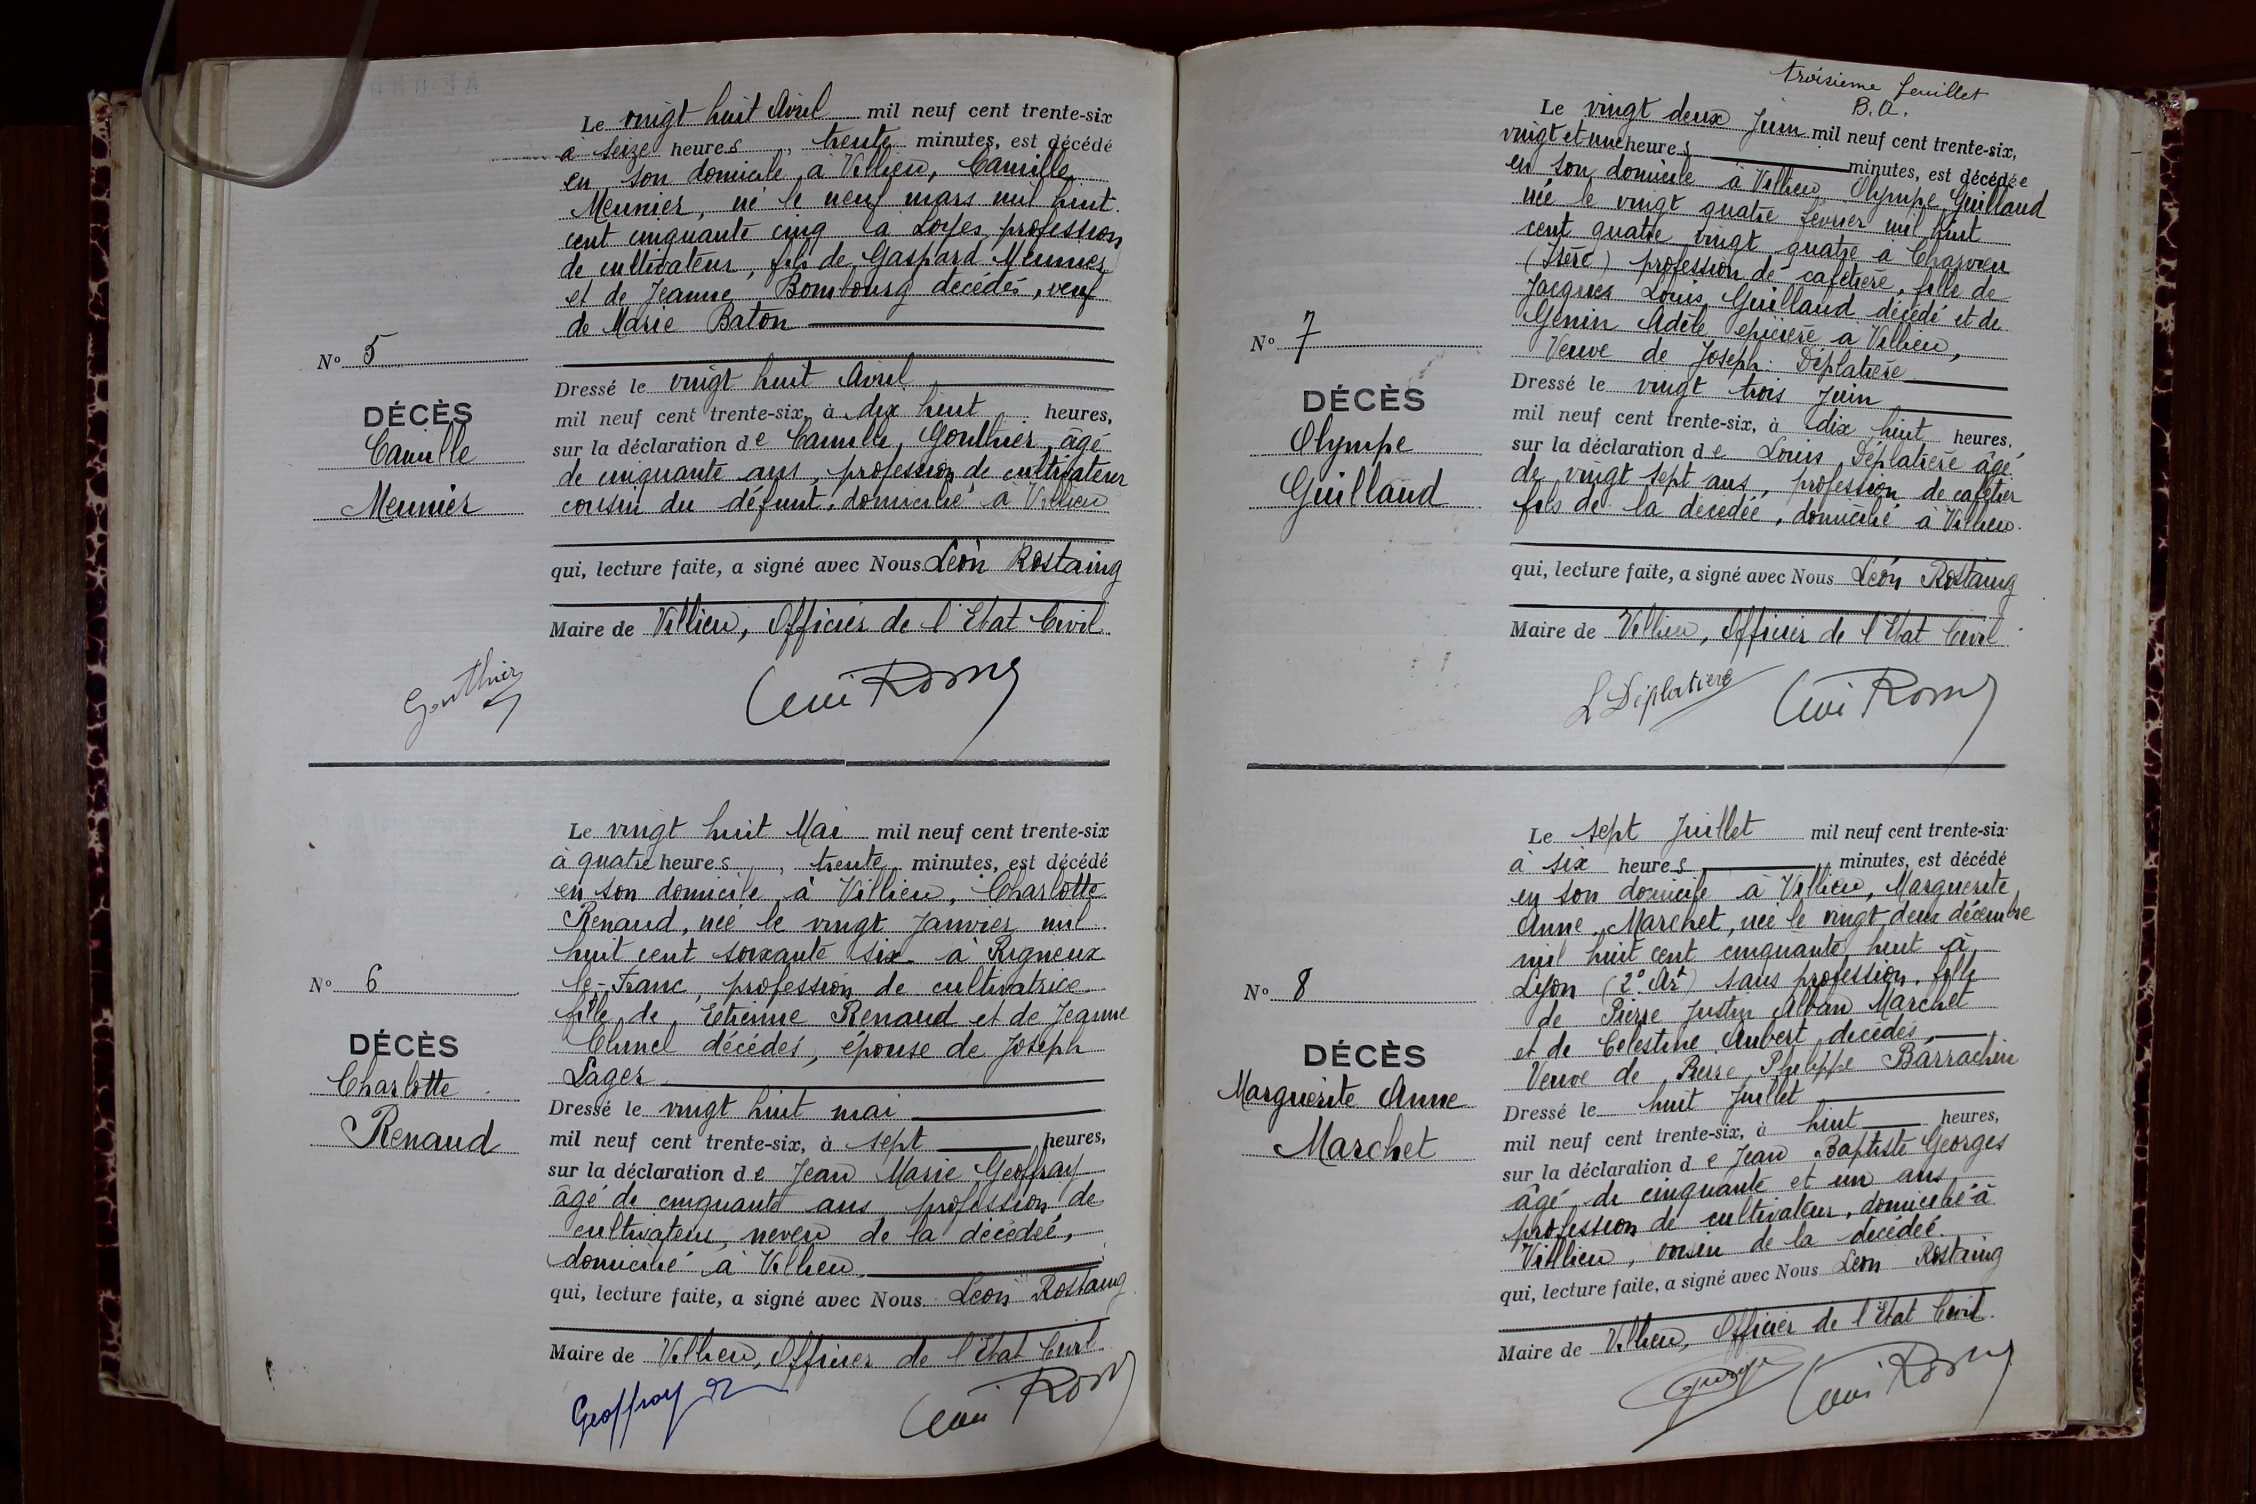 Le vingt huit Avril mil neuf cent trente-six
à seize heures, trente minutes, est décédé
en son domicile à Villieu, Camille
Meunier, né le neuf mars mil huit
cent cinquante cinq à Loyes, profession
de cultivateur, fils de Gaspard Meunier
et de Jeanne décédés, veuf
de Marie Baton
N° 5
DÉCÈS
Camille
Meunier
Dressé le vingt huit Avril
mil neuf cent trente-six, à dix huit heures,
sur la déclaration de Camille Gonthier, âgé
de cinquante ans, profession de cultivateur
cousin du défunt, domicilié à Villieu
qui, lecture faite, a signé avec Nous Léon Rostaing
Maire de Villieu, Officier de l'Etat Civil
Gonthier
Le vingt huit Mai mil neuf cent trente-six
à quatre heures, trente minutes, est décédé
en son domicile à Villieu, Charlotte
Renaud, née le vingt Janvier mil
huit cent soixante six à Rigneux
le-Franc, profession de cultivatrice
fille de Etienne Renaud et de Jeanne
décédés, épouse de Joseph
Lager
N° 6
DÉCÈS
Charlotte
Renaud
Dressé le vingt huit mai
mil neuf cent trente-six, à sept heures,
sur la déclaration de Jean Marie Geoffray
âgé de cinquante ans profession de
cultivateur, neveu de la décédée,
domicilié à Villieu
qui, lecture faite, a signé avec Nous Léon Rostaing
Maire de Villieu, Officier de l'Etat Civil
Geoffray
troisième feuillet
B.A.
Le vingt deux Juin mil neuf cent trente-six,
vingt et une heures minutes, est décédée
en son domicile à Villieu Olympe Guillaud
née le vingt quatre Février mil huit
cent quatre vingt quatre à Charvieu
(Isère) profession de cafetière, fille de
Jacques Louis Guillaud décédé et de
Genin Adèle epicière à Villieu,
Veuve de Joseph Déplatière
N° 7
DÉCÈS
Olympe
Guillaud
Dressé le vingt trois Juin
mil neuf cent trente-six, à dix huit heures,
sur la déclaration de Louis Déplatière âgé
de vingt sept ans, profession de cafetier
fils de la décédée, domicilié à Villieu.
qui, lecture faite, a signé avec Nous Léon Rostaing
Maire de Villieu, Officier de l'Etat Civil
L Déplatière
Le sept Juillet mil neuf cent trente-six
à six heures minutes, est décédé
en son domicile à Villieu, Marguerite
Anne Marchet, née le vingt deux décembre
mil huit cent cinquante huit à
Lyon (2° Art) sans profession, fille
de Pierre Justin Alban Marchet
et de Celestine Aubert décédés,
Veuve de Pierre Philippe Barrachin
N° 8
DÉCÈS
Marguerite Anne
Marchet
Dressé le huit Juillet
mil neuf cent trente-six, à huit heures,
sur la déclaration de Jean Baptiste Georges
âgé de cinquante et un ans
profession de cultivateur, domicilié à
Villieu, voisin de la décédée.
qui, lecture faite, a signé avec Nous Léon Rostaing
Maire de Villieu, Officier de l'Etat Civil.